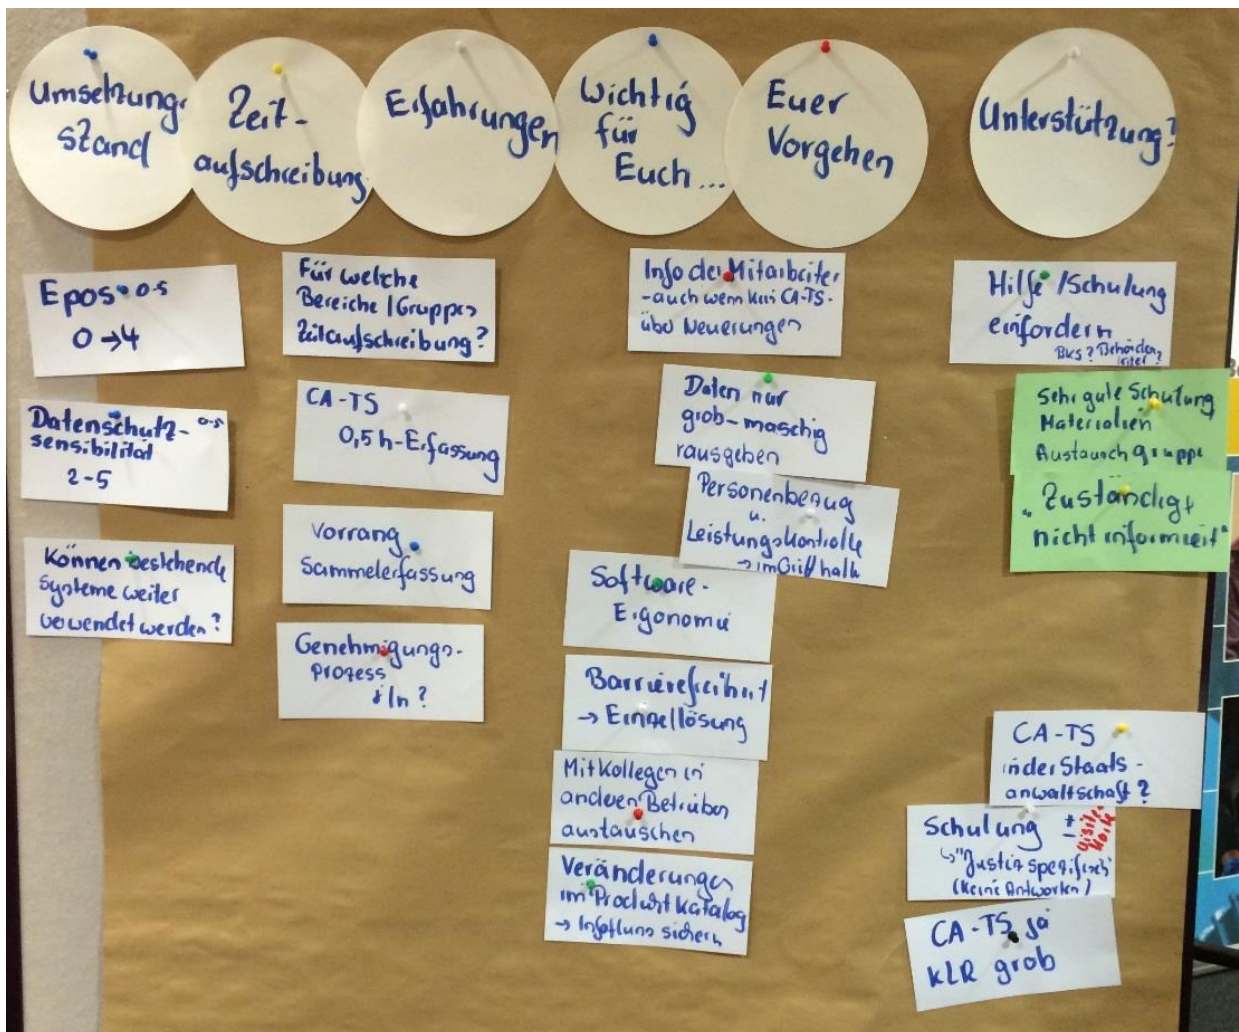 Umsetzungs
stand
Zeit-
aufschreibung
Erfahrungen
Wichtig
für
Euch ...
Euer
Vorgehen
Unterstützung?
Epos 0-5
0→4
Datenschutz- 0-5
sensibilität
2-5
Können bestehende
Systeme weiter
verwendet werden?
Für welche
Bereiche/Gruppen
Zeitaufschreibung?
CA-TS
0,5h-Erfassung
Vorrang
Sammelerfassung
Genehmigungs-
prozess
j/n?
Info der Mitarbeiter
- auch wenn kein CA-TS-
über Neuerungen
Daten nur
grob-maschig
rausgeben
Personenbezug
u.
Leistungskontrolle
→ im Griff halt
Software-
Ergonomie
Barrierefreiheit
→ Einzellösung
Mit Kollegen in
anderen Betrieben
austauschen
Veränderungen
im Produktkatalog
→ Einfluss sichern
Hilfe/Schulung
einfordern
BKS? Behörden
leiter?
Sehr gute Schulung
Materialien
Austauschgruppe
"Zuständigt
nicht informiert"
CA-TS
in der Staats-
anwaltschaft?
Schulung ±
↳ "Justizspezifisch"
(keine Antworten)
CA-TS ja
KLR grob